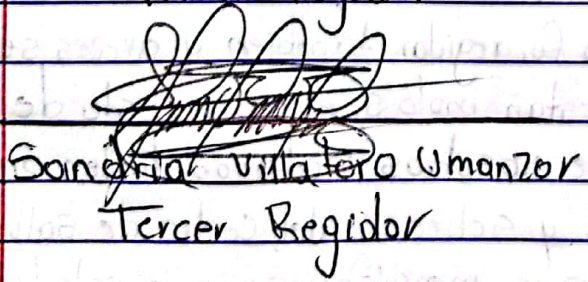 Sandria Villatoro Umanzor
Tercer Regidor